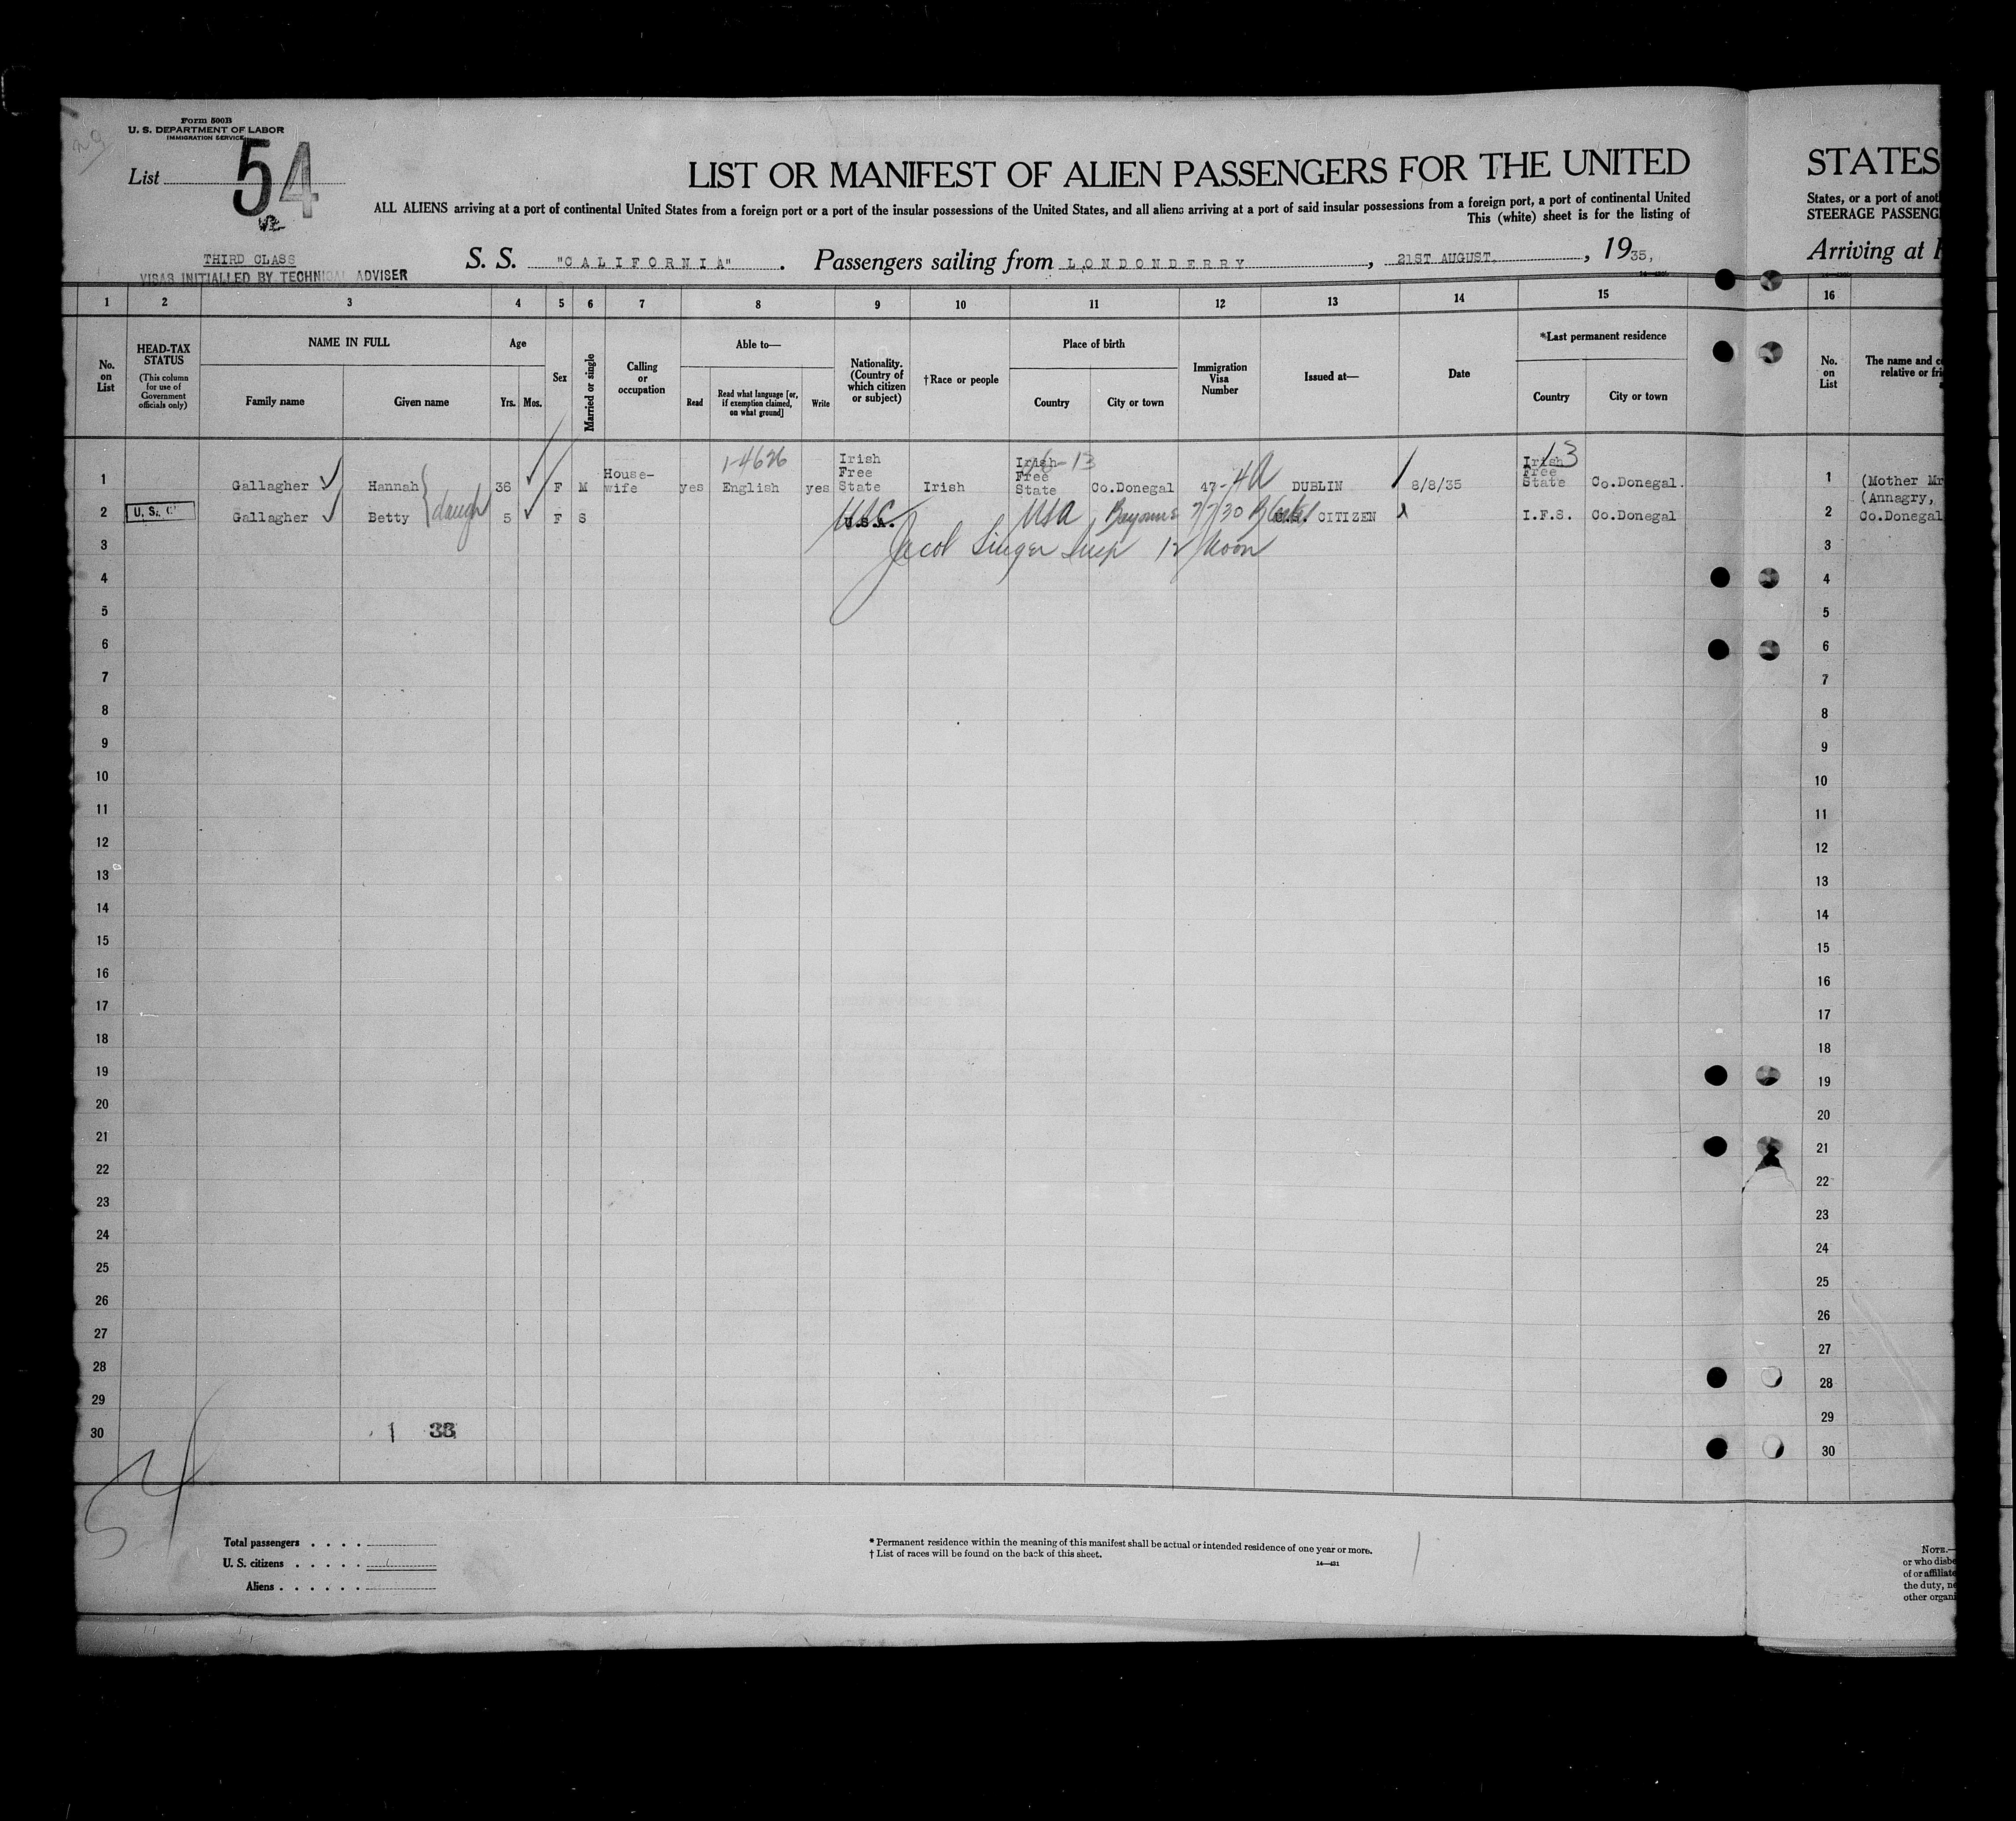 Form 500B
U. S. DEPARTMENT OF LABOR
IMMIGRATION SERVICE
List 54
LIST OR MANIFEST OF ALIEN PASSENGERS FOR THE UNITED
STATES
ALL ALIENS arriving at a port of continental United States from a foreign port or a port of the insular possessions of the United States, and all aliens arriving at a port of said insular possessions from a foreign port, a port of continental United
States, or a port of anot
This (white) sheet is for the listing of
STEERAGE PASSENG
THIRD CLASS
VISAS INITIALLED BY TECHNICAL ADVISER
S. S. "CALIFORNIA". Passengers sailing from LONDONDERRY, 21ST AUGUST, 1935,
Arriving at
1 2 3 4 5 6 7 8 9 10 11 12 13 14 15 16
No. on List
HEAD-TAX STATUS
(This column for use of Government officials only)
NAME IN FULL
Family name Given name
Age
Yrs. Mos.
Sex
Married or single
Calling or occupation
Able to—
Read
Read what language [or, if exemption claimed, on what ground]
Write
Nationality. (Country of which citizen or subject)
†Race or people
Place of birth
Country City or town
Immigration Visa Number
Issued at—
Date
*Last permanent residence
Country City or town
No. on List
The name and
relative or fri
1-4626
1 Gallagher Hannah 36 F M House-wife yes English yes Irish Free State Irish Irish Free State Co.Donegal 47- DUBLIN 8/8/35 Irish Free State Co.Donegal. 1 (Mother Mr
(Annagry,
2 U. S. C. Gallagher Betty daugh 5 F S U.S.A. USC USA Bayonne 7/7/30 U.S. CITIZEN I.F.S. Co.Donegal 2 Co.Donegal
Jacob Singer Insp 12 Noon
3 3
4 4
5 5
6 6
7 7
8 8
9 9
10 10
11 11
12 12
13 13
14 14
15 15
16 16
17 17
18 18
19 19
20 20
21 21
22 22
23 23
24 24
25 25
26 26
27 27
28 28
29 29
30 1 33 30
54
Total passengers
U. S. citizens
Aliens
* Permanent residence within the meaning of this manifest shall be actual or intended residence of one year or more.
† List of races will be found on the back of this sheet.
14—431
NOTE.—
or who disbe
of or affiliate
the duty, ne
other organi